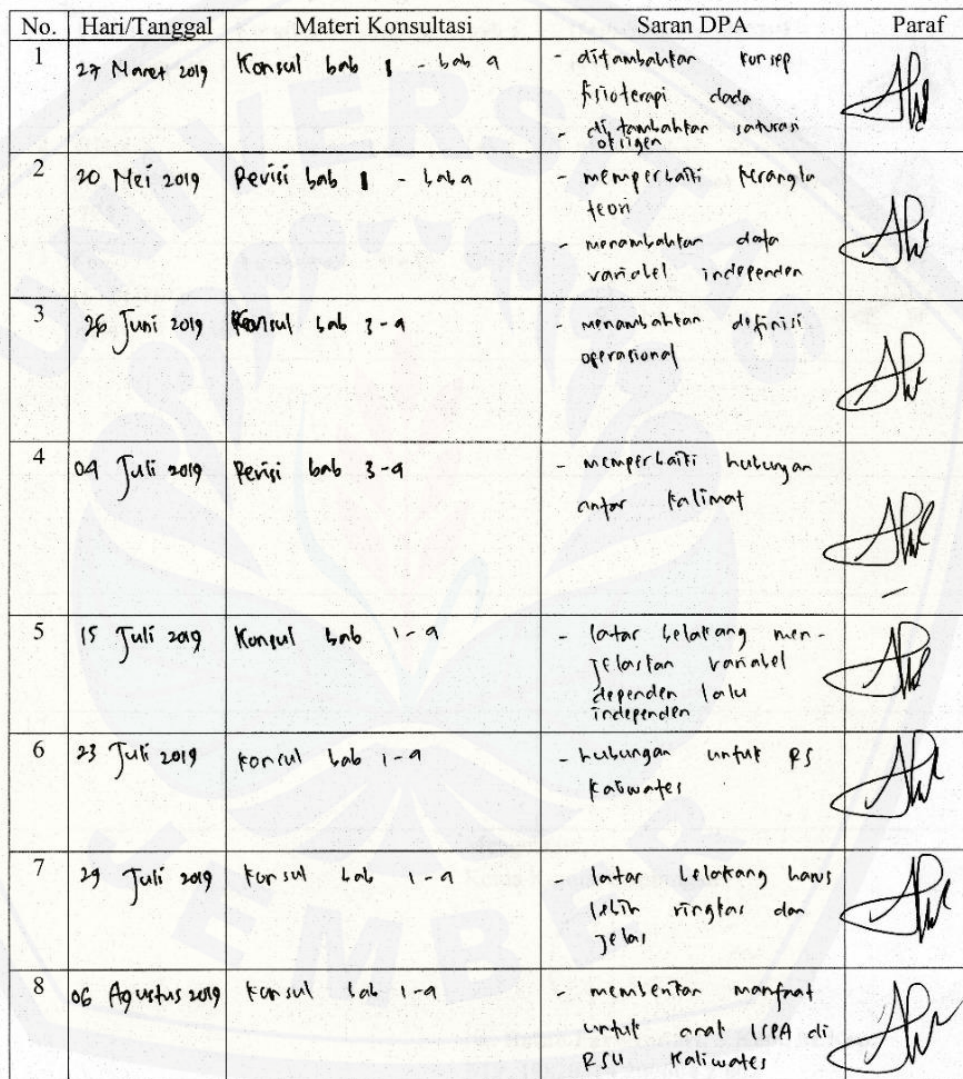 No. Hari/Tanggal Materi Konsultasi Saran DPA Paraf
1 27 Maret 2019 Konsul bab 1 - bab 4 - ditambahkan konsep
fisioterapi dada
- ditambahkan saturasi
oksigen
2 20 Mei 2019 Revisi bab 1 - bab 4 - memperbaiki kerangka
teori
- menambahkan data
variabel independen
3 26 Juni 2019 Konsul bab 3-4 - menambahkan definisi
operasional
4 04 Juli 2019 Revisi bab 3-4 - memperbaiki hubungan
antar kalimat
5 15 Juli 2019 Konsul bab 1-4 - latar belakang men-
jelaskan variabel
dependen lalu
independen
6 23 Juli 2019 Konsul bab 1-4 - hubungan untuk RS
Kaliwates
7 29 Juli 2019 Konsul bab 1-4 - latar belakang harus
lebih ringkas dan
jelas
8 06 Agustus 2019 Konsul bab 1-4 - memberikan manfaat
untuk anak ISPA di
RSU Kaliwates
UNIVERSITAS
JEMBER